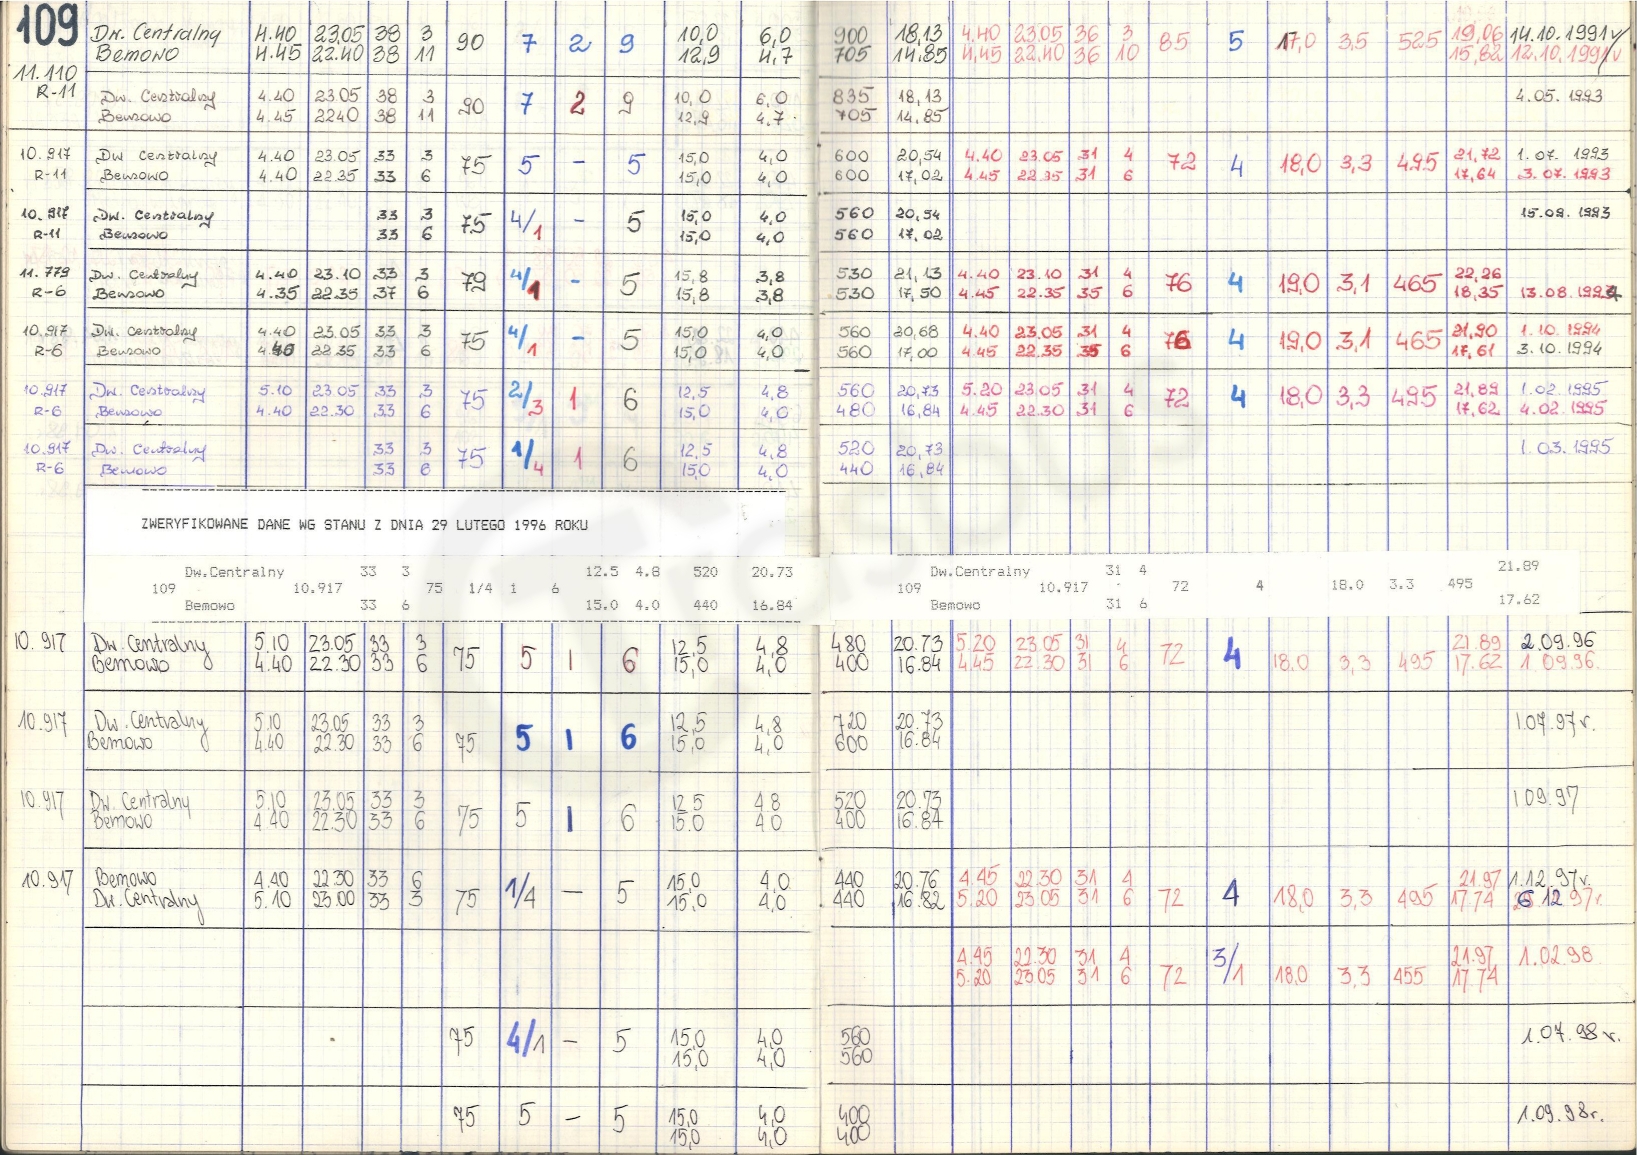 109 Dw. Centralny 4.40 23.05 38 3 90 7 2 9 10,0 6,0 900 18,13 4.40 23.05 36 3 85 5 17,0 3,5 525 19,06 14.10.1991 v
Bemowo 4.45 22.40 38 11 12,9 4,7 705 14,85 4,45 22,40 36 10 15,82 12.10.1991 v
11.110
R-11 Dw. Centralny 4.40 23.05 38 3 90 7 2 9 10,0 6,0 835 18,13 4.05.1993
Bemowo 4.45 2240 38 11 12,9 4.7 705 14,85
10.917 Dw Centralny 4.40 23.05 33 3 75 5 - 5 15,0 4,0 600 20,54 4.40 23.05 31 4 72 4 18,0 3,3 495 21,72 1.07.1993
R-11 Bemowo 4.40 22.35 33 6 15,0 4,0 600 17,02 4.45 22.35 31 6 17,64 3.07.1993
10.917 Dw. Centralny 33 3 75 4/1 - 5 15,0 4,0 560 20,54 15.09.1993
R-11 Bemowo 33 6 15,0 4,0 560 17,02
11.779 Dw. Centralny 4.40 23.10 33 3 79 4/1 - 5 15,8 3,8 530 21,13 4.40 23.10 31 4 76 4 19,0 3,1 465 22,26
R-6 Bemowo 4.35 22.35 37 6 15,8 3,8 530 17,50 4.45 22.35 35 6 18,35 13.08.1994
10.917 Dw. Centralny 4.40 23.05 33 3 75 4/1 - 5 15,0 4,0 560 20,68 4.40 23.05 31 4 76 4 19,0 3,1 465 21,90 1.10.1994
R-6 Bemowo 4.40 22.35 33 6 15,0 4,0 560 17,00 4.45 22.35 35 6 17,61 3.10.1994
10.917 Dw. Centralny 5.10 23.05 33 3 75 2/3 1 6 12,5 4,8 560 20,73 5.20 23.05 31 4 72 4 18,0 3,3 495 21,89 1.02.1995
R-6 Bemowo 4.40 22.30 33 6 15,0 4,0 480 16,84 4.45 22.30 31 6 17,62 4.02.1995
10.917 Dw. Centralny 33 3 75 1/4 1 6 12,5 4,8 520 20,73 1.03.1995
R-6 Bemowo 33 6 15,0 4,0 440 16,84
ZWERYFIKOWANE DANE WG STANU Z DNIA 29 LUTEGO 1996 ROKU
Dw.Centralny 33 3 12.5 4.8 520 20.73 Dw.Centralny 31 4 21.89
109 10.917 75 1/4 1 6 109 10.917 72 4 18.0 3.3 495
Bemowo 33 6 15.0 4.0 440 16.84 Bemowo 31 6 17.62
10.917 Dw. Centralny 5.10 23.05 33 3 75 5 1 6 12,5 4,8 480 20.73 5.20 23.05 31 4 72 4 18,0 3,3 495 21.89 2.09.96
Bemowo 4.40 22.30 33 6 15,0 4,0 400 16.84 4.45 22.30 31 6 17.62 1.09.96.
10.917 Dw. Centralny 5.10 23.05 33 3 75 5 1 6 12,5 4,8 720 20.73 1.07.97r.
Bemowo 4.40 22.30 33 6 15,0 4,0 600 16.84
10.917 Dw. Centralny 5.10 23.05 33 3 75 5 1 6 12.5 4.8 520 20.73 1.09.97
Bemowo 4.40 22.30 33 6 15.0 4.0 400 16.84
10.917 Bemowo 4.40 22.30 33 6 75 1/4 - 5 15,0 4,0 440 20.76 4.45 22.30 31 4 72 4 18,0 3,3 495 21.97 1.12.97r.
Dw. Centralny 5.10 23.00 33 3 15,0 4,0 440 16.82 5.20 23.05 31 6 17.74 6.12.97r.
4.45 22.30 31 4 72 3/1 18,0 3,3 455 21.97 1.02.98
5.20 23.05 31 6 17.74
75 4/1 - 5 15,0 4,0 560 1.07.98 r.
15,0 4,0 560
75 5 - 5 15,0 4,0 400 1.09.98r.
15,0 4,0 400